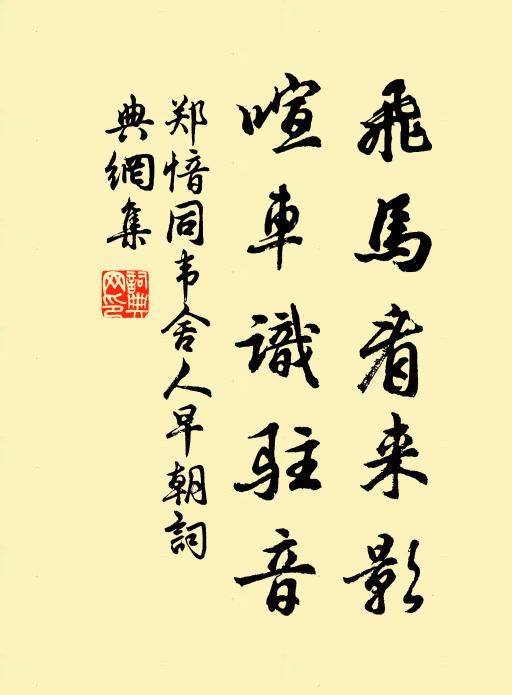 飛馬看来影
喧車識駐音
郑愔同韦舍人早朝詞
典網集
詞典
网印